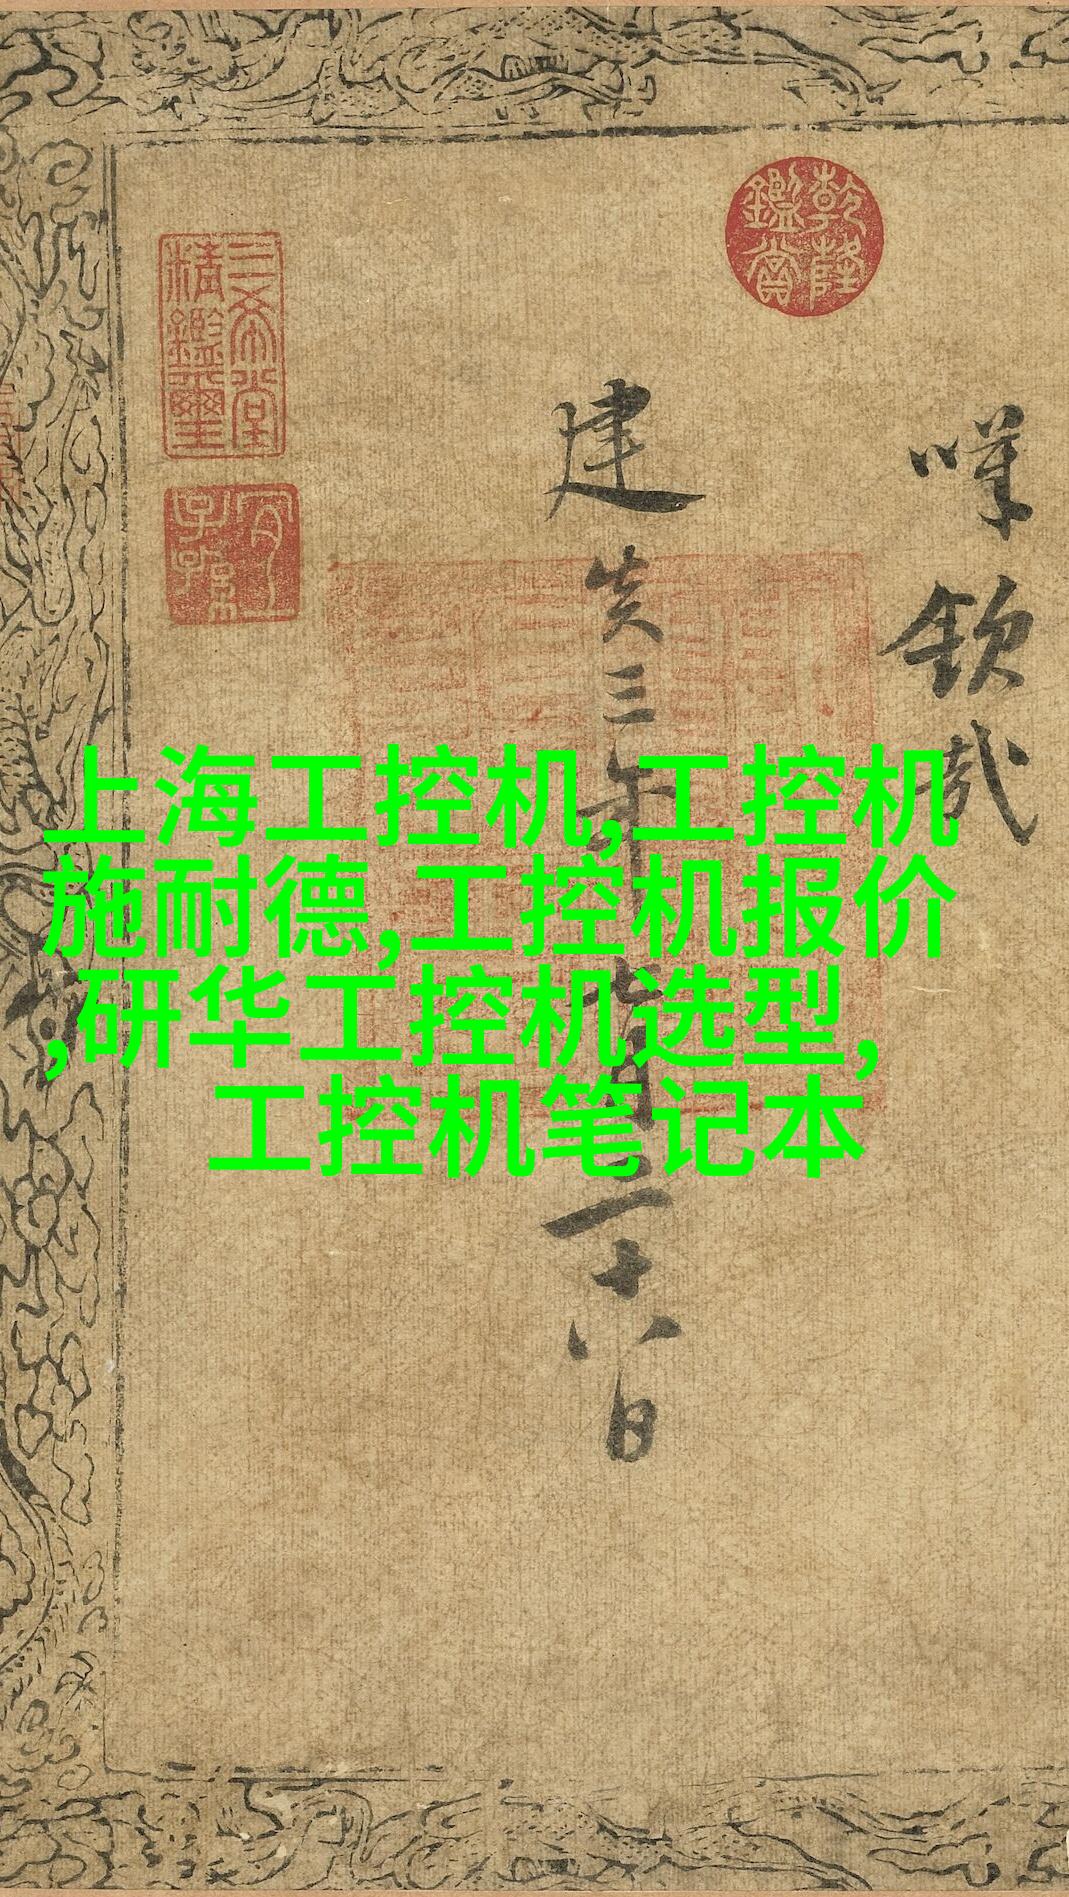 上海工控机,工控机
施耐德,工控机报价
,研华工控机选型,
工控机笔记本
欽哉
建炎三年七月二十八日
乾隆鑑賞
三希堂精鑑璽
宜子孫